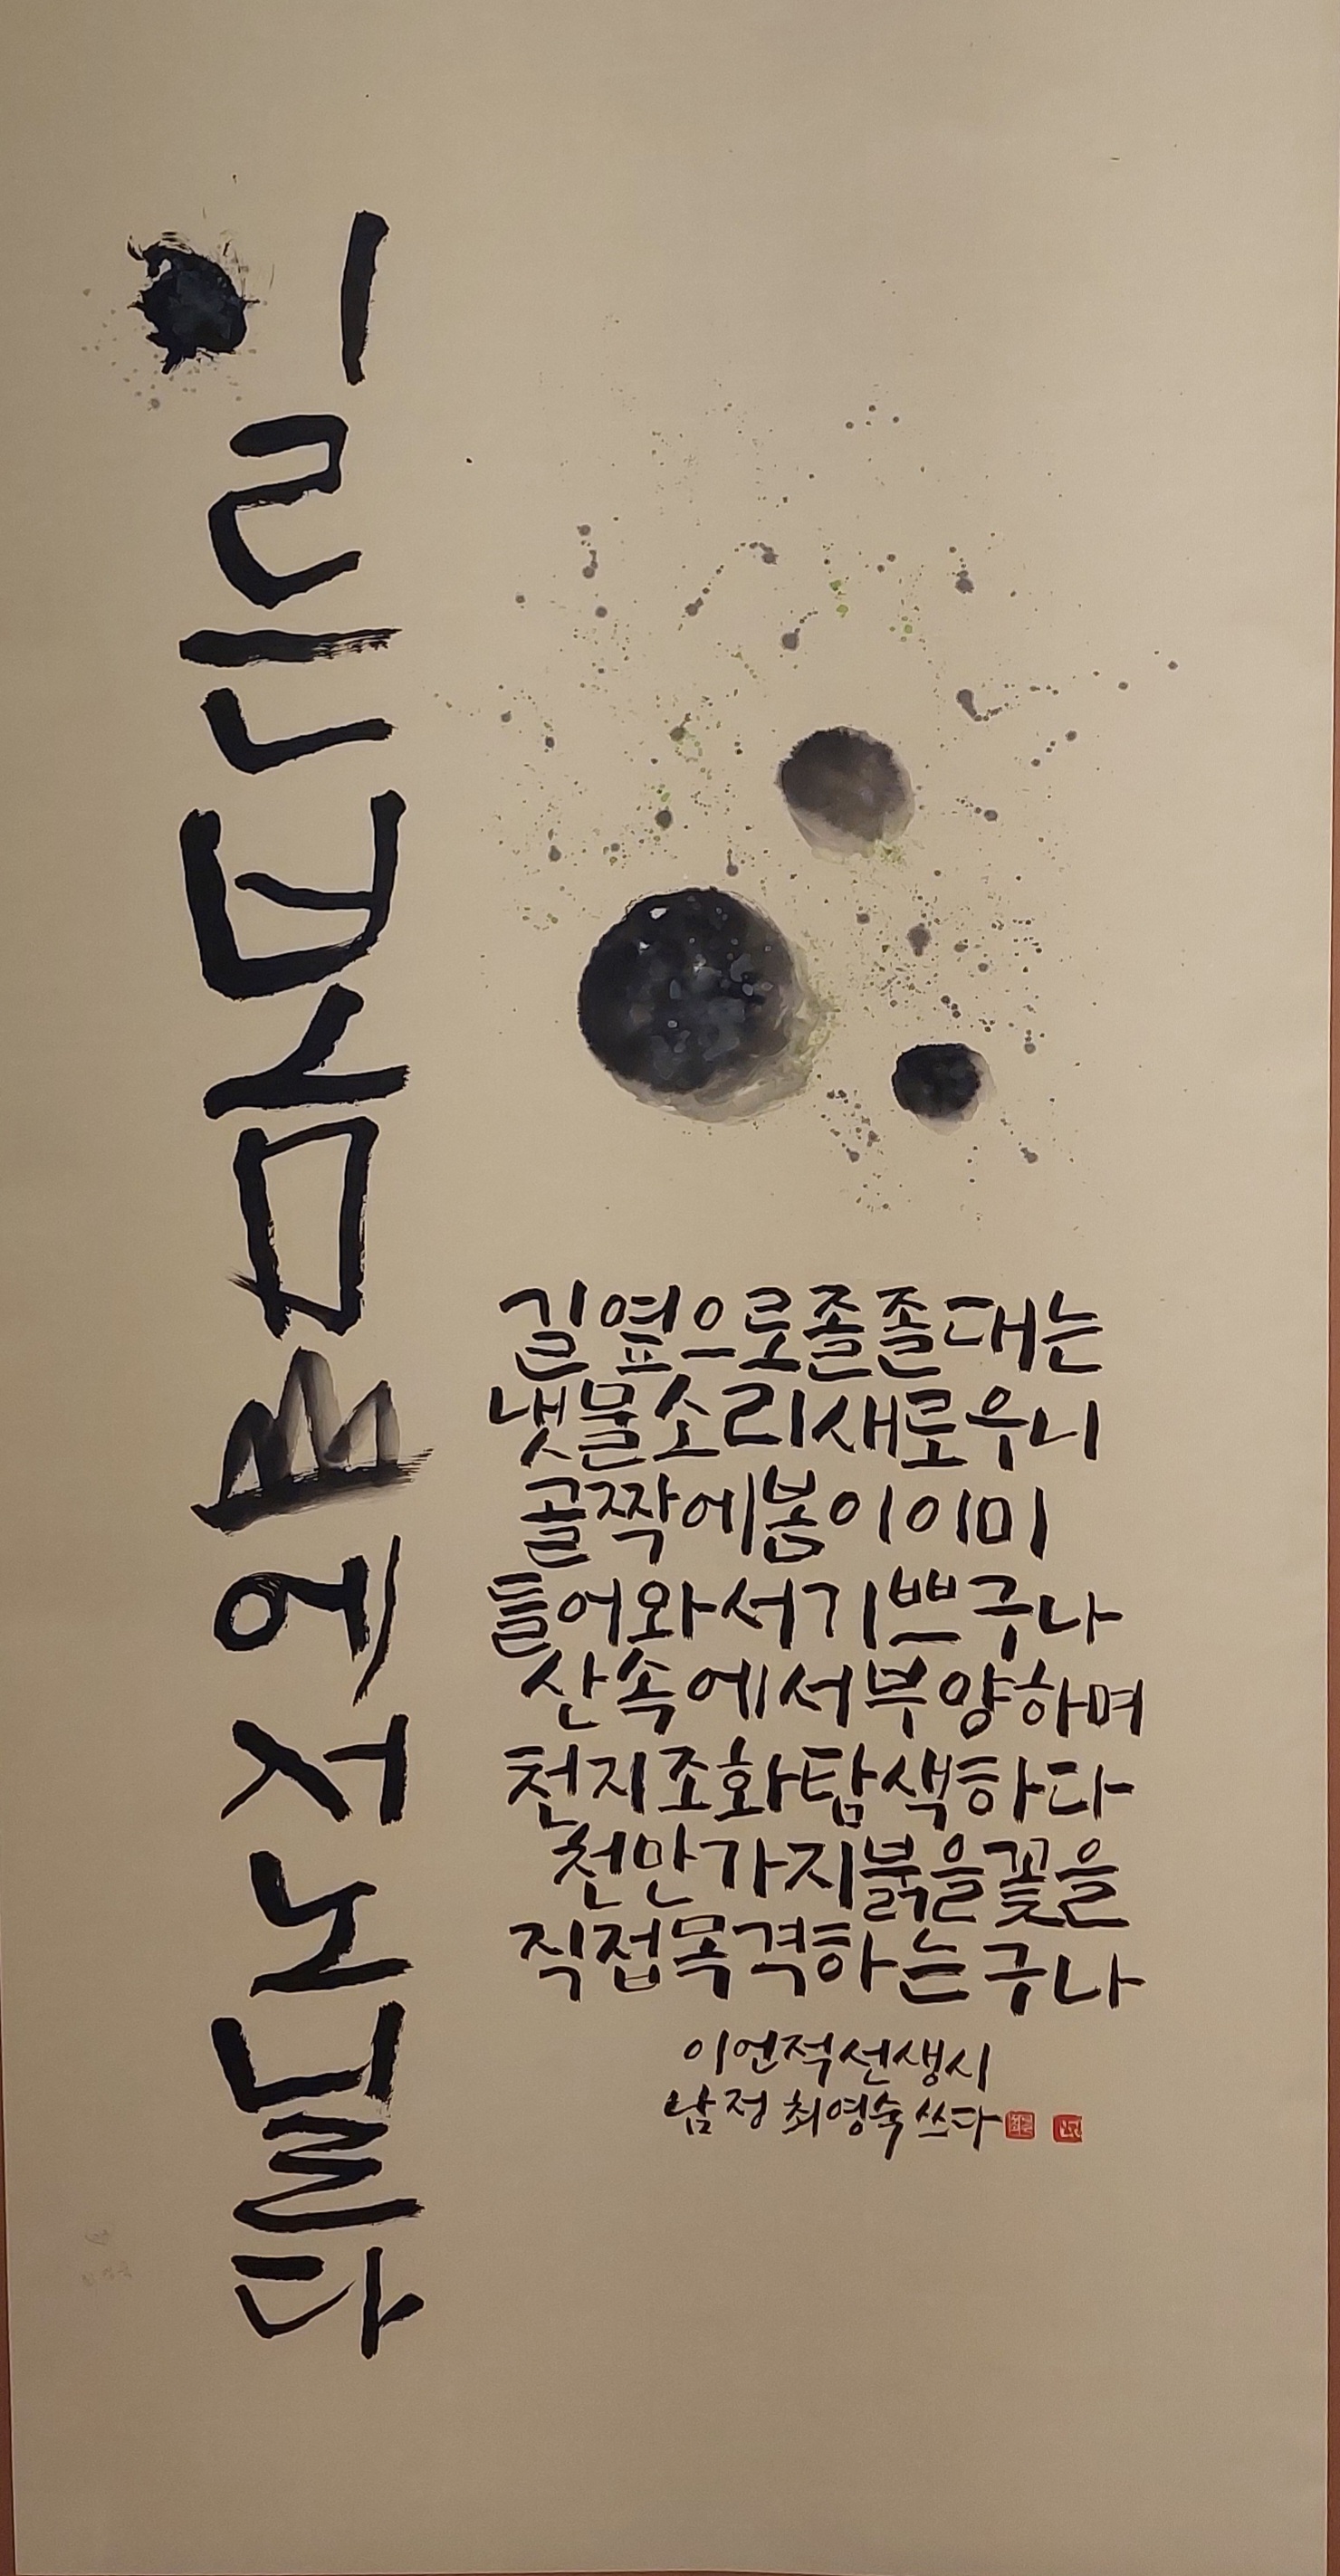 이른봄山에서노닐다
길옆으로졸졸대는
냇물소리새로우니
골짝에봄이이미
들어와서기쁘구나
산속에서부양하며
천지조화탐색하다
천만가지붉을꽃을
직접목격하는구나
이언적선생시
남정 최영숙 쓰다